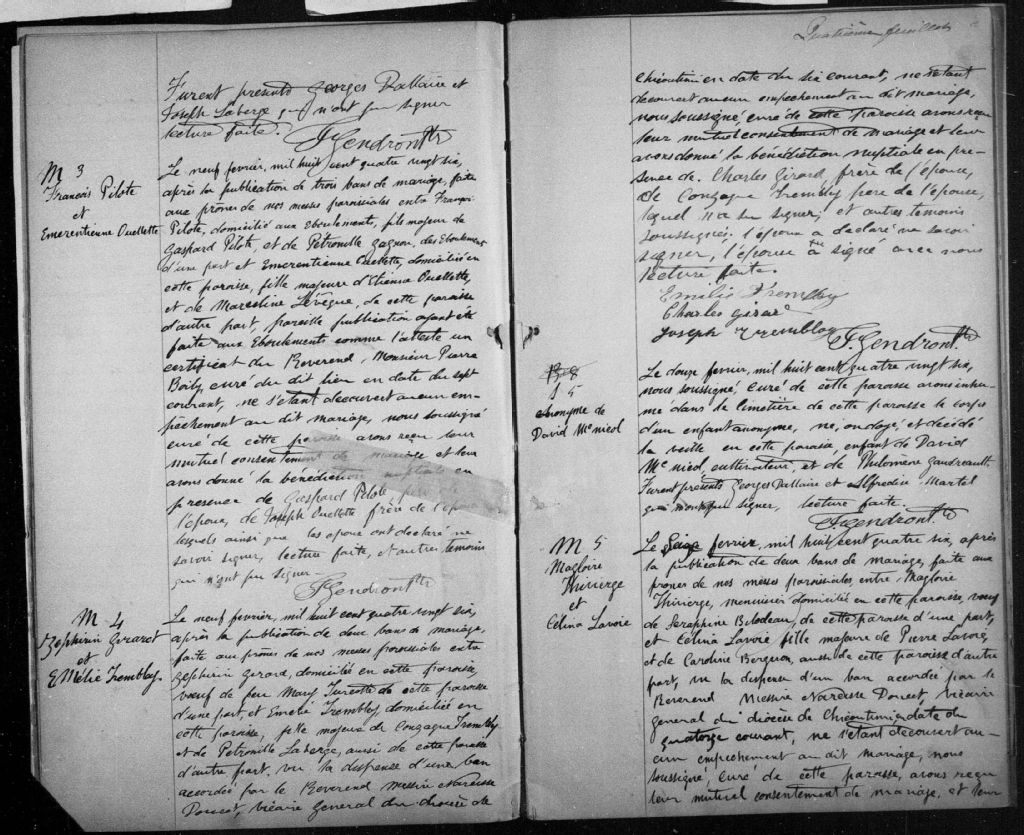 Furent presents Georges Dallaire et
Joseph Laberge, qui n'ont pu signer
lecture faite.
J Gendron Ptre
M 3
Francois Pilote
et
Emerentienne Ouellette
Le neuf fevrier, mil huit cent quatre vingt six,
après la publication de trois bans de mariage, faite
aux prônes de nos messes paroissiales entre François
Pilote, domicilié aux Eboulements, fils majeur de
Gaspard Pilote et de Petronille Gagnon, des Eboulements
d'une part et Emerentienne Ouellette, domiciliée en
cette paroisse, fille majeure d'Etienne Ouellette,
et de Marcelline Lévêque, de cette paroisse
d'autre part, pareille publication ayant été
faite aux Eboulements comme l'atteste un
certificat du Reverend, Monsieur Pierre
Boily, curé du dit lieu en date du sept
courant, ne s'étant decouvert aucun em-
pêchement au dit mariage, nous soussigné
curé de cette paroisse avons reçu leur
mutuel consentement de mariage et leur
avons donné la bénédiction nuptiale en
presence de Gaspard Pilote, père de
l'époux, de Joseph Ouellette frère de l'épouse
lesquels ainsi que les époux ont déclaré ne
savoir signer, lecture faite, et autres temoins
qui n'ont pu signer.
J Gendron Ptre
M 4
Zephirin Girard
et
Emélie Tremblay.
Le neuf fevrier, mil huit cent quatre vingt six,
après la publication de deux bans de mariage,
faite aux prônes de nos messes paroissiales entre
Zephirin Girard, domicilié en cette paroisse,
veuf de feu Mary Turcotte de cette paroisse
d'une part, et Emelié Trembley, domiciliée en
cette paroisse, fille majeure de Congague Trembley
et de Petronille Laberge, aussi de cette paroisse
d'autre part, vu la dispense d'un ban
accordée par le Reverend messire Narcisse
Doucet, vicaire general du diocèse de
Quatrième feuillet
Chicoutimi en date du six courant, ne s'étant
decouvert aucun empechement au dit mariage,
nous soussigné, curé de cette paroisse avons reçu
leur mutuel consentement de mariage et leur
avons donné la bénédiction nuptiale en pre-
sence de Charles Girard, frère de l'époux,
de Congague Trembley pere de l'épouse,
lequel n'a su signer, et autres temoins
soussignés; l'époux a déclaré ne savoir
signer, l'épouse a signé avec nous
lecture faite.
Emélie Trembley
Charles Girard
Joseph Tremblay
J. Gendron Ptre
S 5
Anonyme de
David Mc nicol
Le douze fevrier, mil huit cent quatre vingt six,
nous soussigné, curé de cette paroisse avons inhu-
mé dans le cimetière de cette paroisse le corps
d'un enfant anonyme, né, ondoyé, et décédé
la veille en cette paroisse, enfant de David
Mc nicol, cultivateur, et de Philomène Gaudreault.
Furent présents Georges Dallaire et Alfredin Martel
qui n'ont pu signer, lecture faite.
J. Gendron Ptre
M 5
Magloire
Thivierge
et
Célina Lavoie
Le Seize fevrier, mil huit cent quatre six, après
la publication de deux bans de mariage, faite aux
prones de nos messes paroissiales, entre Magloire
Thivierge, menuisier domicilié en cette paroisse, veuf
de Seraphine Bilodeau, de cette paroisse d'une part,
et Célina Lavoie fille majeure de Pierre Lavoie,
et de Caroline Bergeron, aussi de cette paroisse d'autre
part, vu la dispense d'un ban accordée par le
Reverend Messire Narcisse Doucet, vicaire
general du diocèse de Chicoutimi, en date du
quatorze courant, ne s'étant decouvert au-
cun empechement au dit mariage, nous
soussigné, curé de cette paroisse, avons reçu
leur mutuel consentement de mariage, et leur